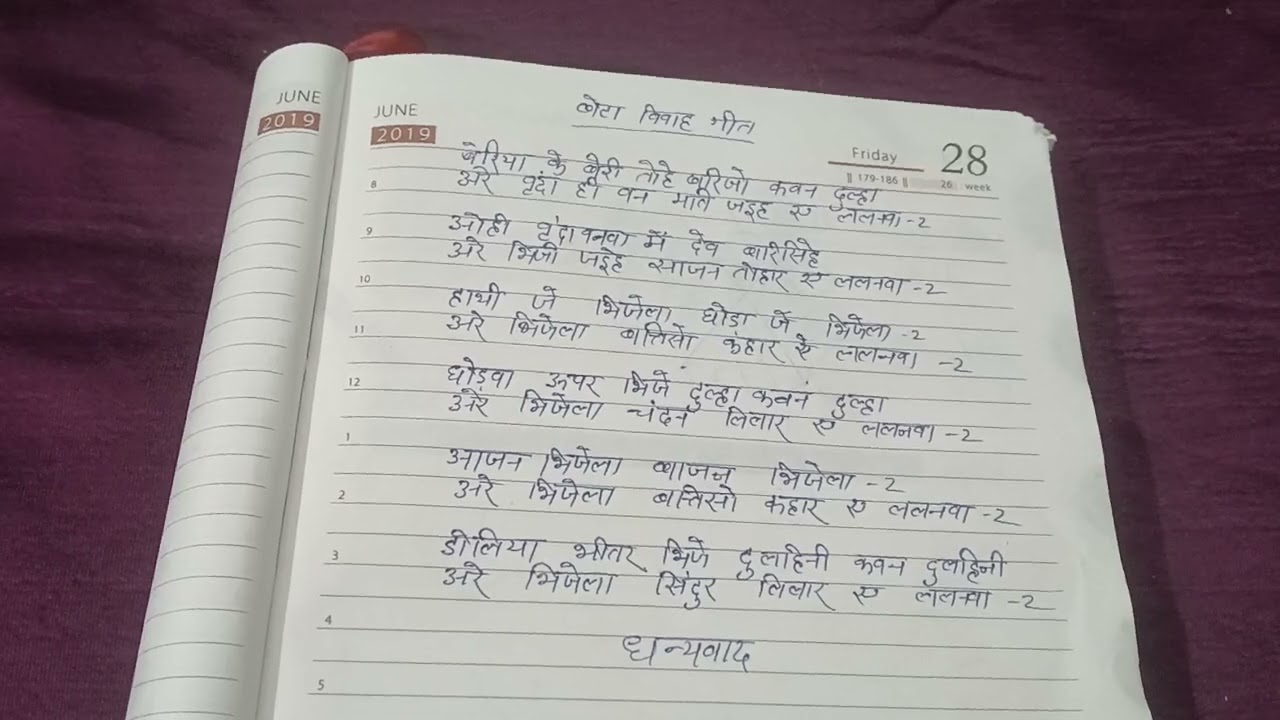 JUNE
2019
JUNE
2019
Friday
28
|| 179-186 || 26 week
बेटा विवाह गीत
बेरिया के बेरी तोहे बरिजो कवन दुल्हा
अरे वृंदा ही वन मति जइह ए ललनवा -2
ओही वृंदावनवा में देव बारिसिहे
अरे भिजी जइहे साजन तोहार ए ललनवा -2
हाथी जे भिजेला घोडा जे भिजेला -2
अरे भिजेला बत्तिसो कंहार ए लालनवा -2
घोड़वा ऊपर भिजे दुल्हा कवन दुल्हा
अरे भिजेला चंदन लिलार ए ललनवा -2
आजन भिजेला बाजन भिजेला -2
अरे भिजेला बत्तिसो कहार ए ललनवा -2
डोलिया भीतर भिजे दुलहिनी कवन दुलहिनी
अरे भिजेला सिंदुर लिलार ए ललनवा -2
धन्यवाद
8
9
10
11
12
1
2
3
4
5